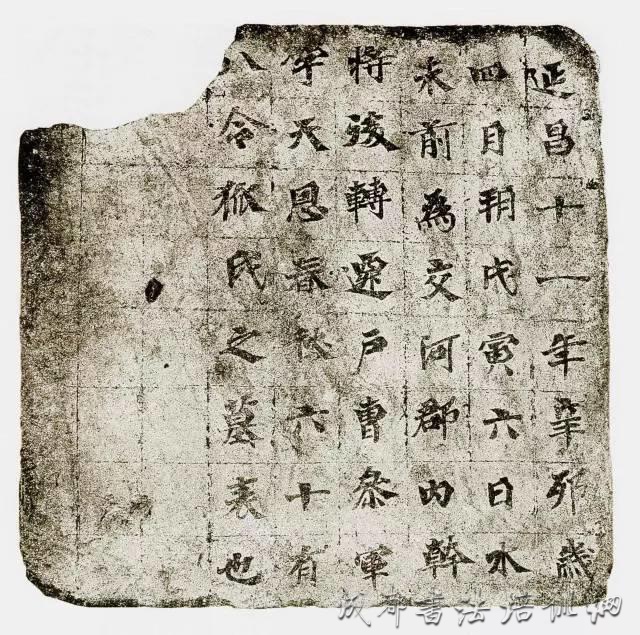 延昌十一年辛卯歲
四月朔戊寅六日水
未前爲交河郡内幹
將後轉遷戶曹參軍
字天恩春秋六十有
八令狐氏之墓表也
成都书法培训网